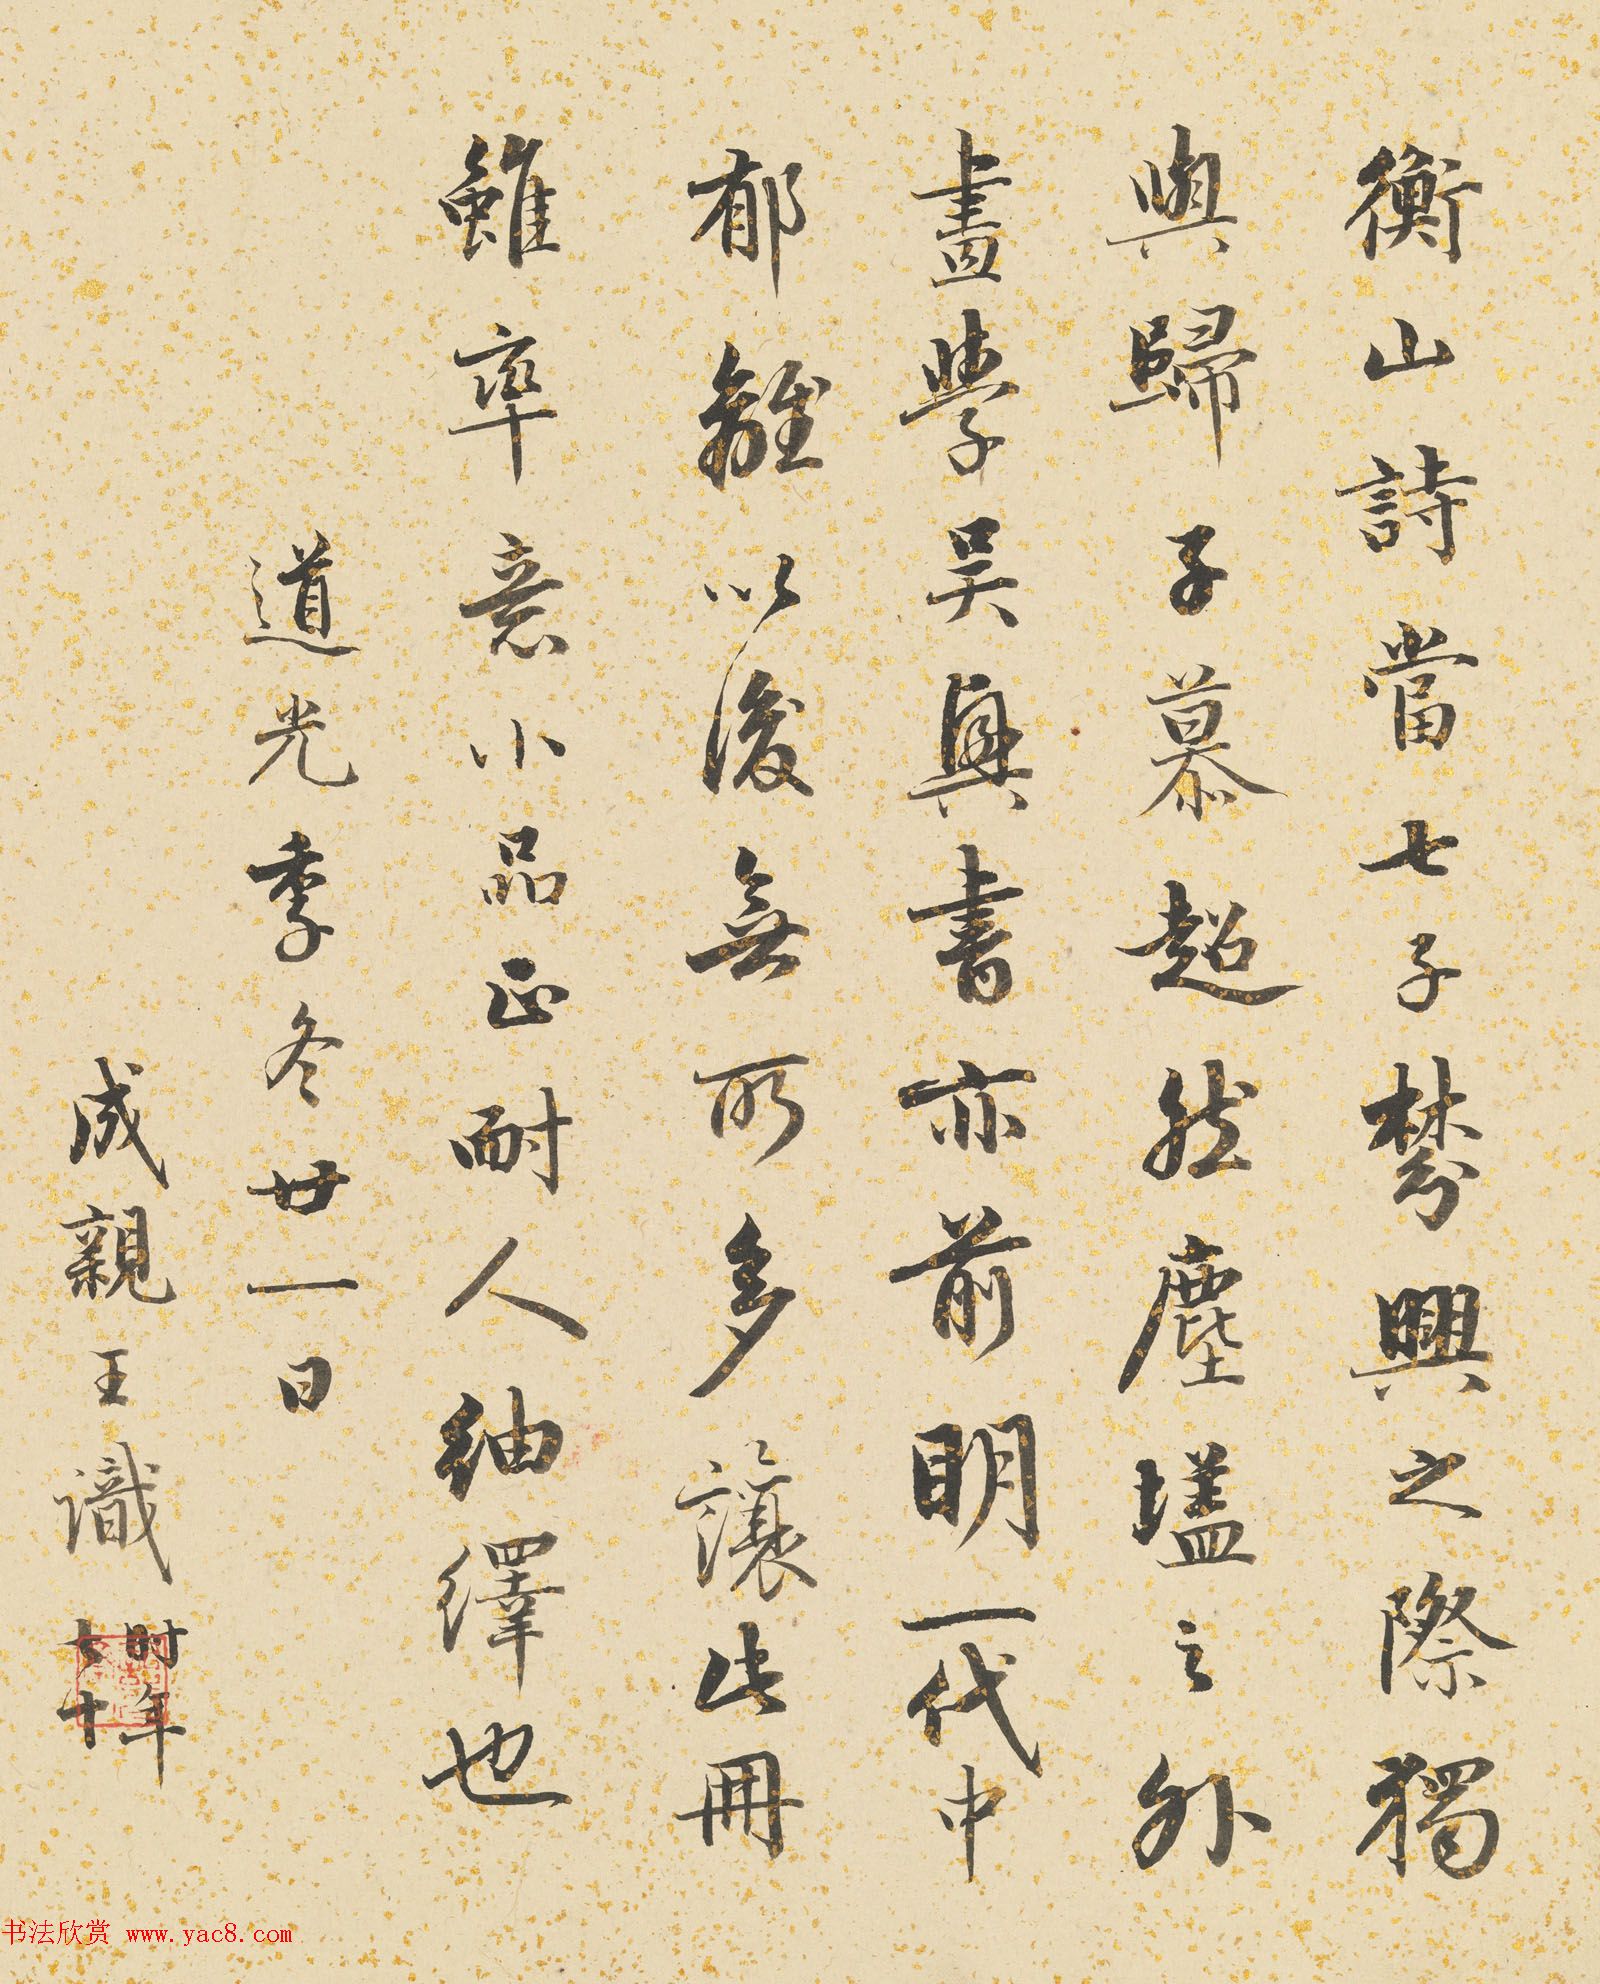 衡山詩當七子棼興之際獨
與歸子慕超然塵壒之外
畫學吳興書亦前明一代中
郁離以後無所多讓此冊
雖率意小品正耐人紬繹也
道光季冬廿一日
成親王識時年
七十
书法欣赏 www.yac8.com